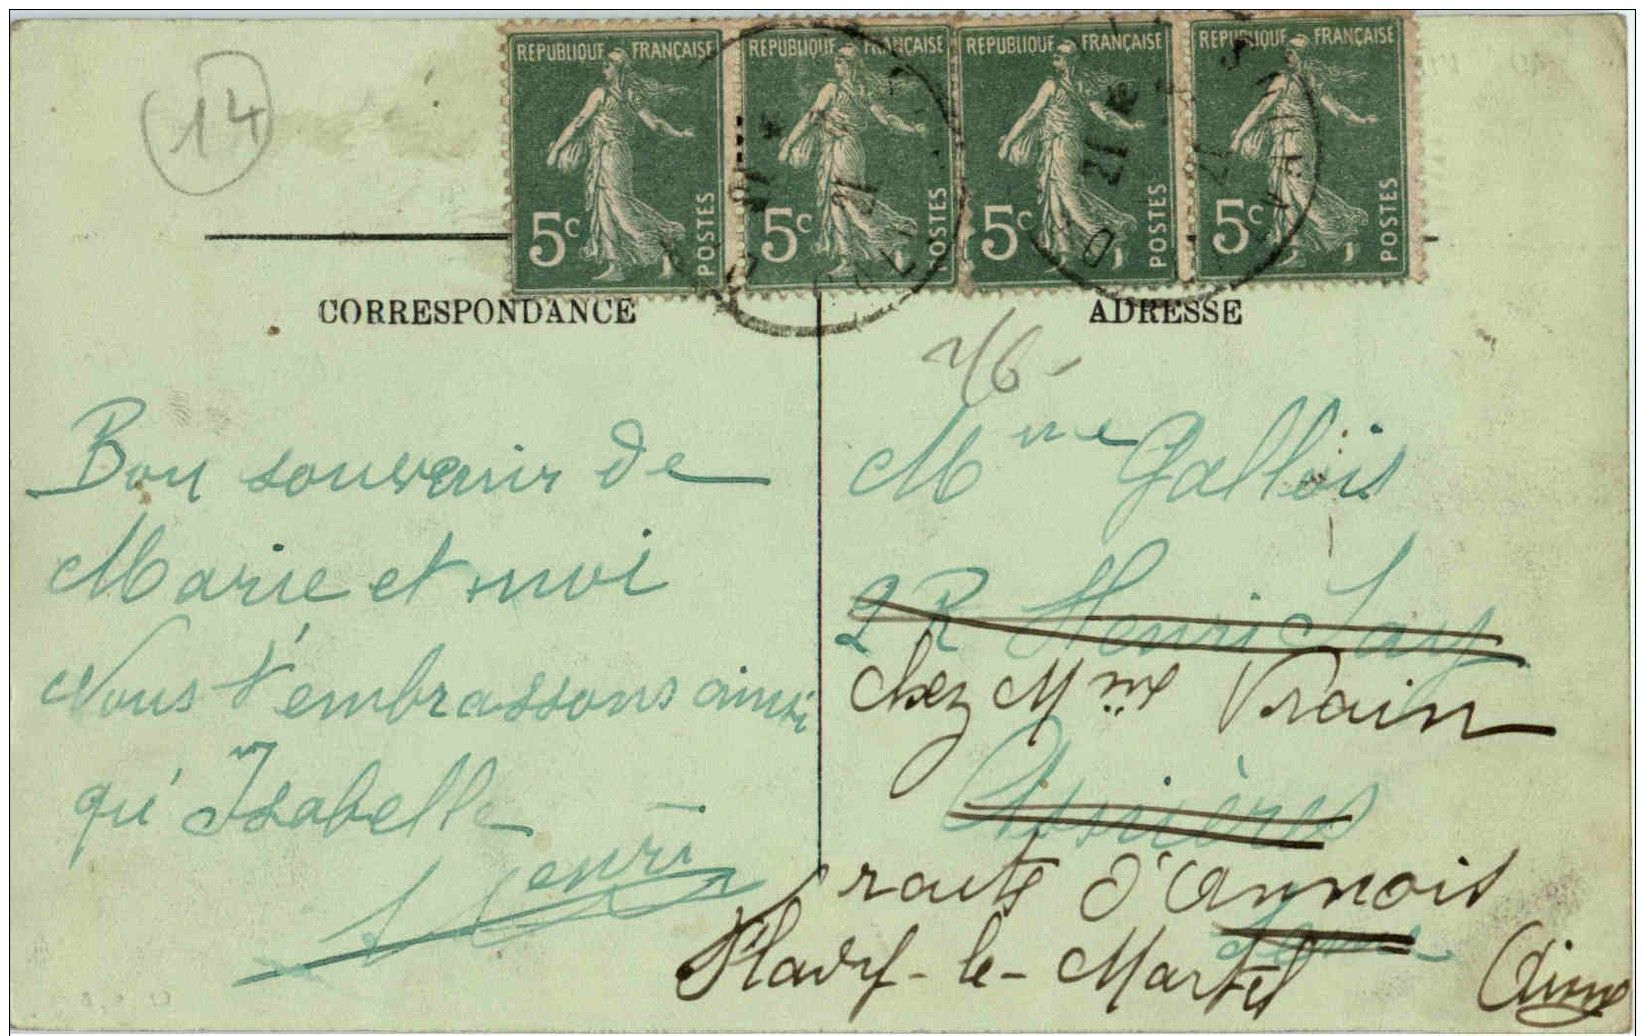 14
REPUBLIQUE FRANÇAISE REPUBLIQUE FRANÇAISE REPUBLIQUE FRANÇAISE REPUBLIQUE FRANÇAISE
5c POSTES 5c POSTES 5c POSTES 5c POSTES
CORRESPONDANCE
Bon souvenir de
Marie et moi
Nous t'embrassons ainsi
qu'Isabelle
Henri
ADRESSE
Mme Gallois
2 R Henri Say
chez Mme Vrain
Asnières
route d'Annois
Flavy-le-Martel (Aisne